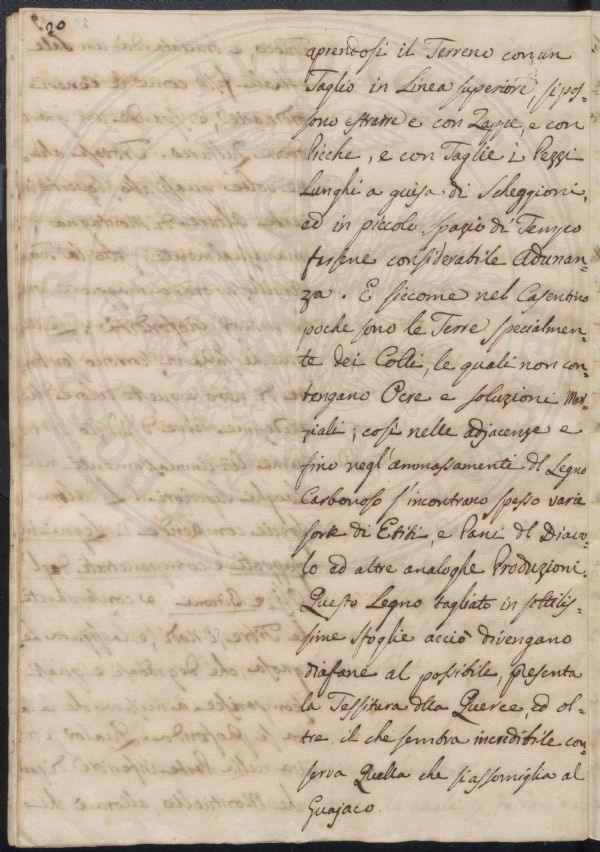 20
aprendosi il Terreno con un
Taglio in Linea superiore, si pos-
sono estrarre e con Zappe, e con
Picche, e con Taglie i Pezzi
Lunghi a guisa di Scheggioni,
ed in piccolo Spazio di Tempo
farsene considerabile Adunan-
za. E siccome nel Casentino
poche sono le Terre specialmen-
te dei Colli, le quali non con-
tengano Ocre e soluzioni Mar-
ziali; così nelle adjacenze e
fino negl'ammassamenti dl Legno
Carbonoso s'incontrano spesso varie
sorte di Etiti, e Pani dl Diavo-
lo ed altre analoghe Produzioni.
Questo Legno tagliato in sottilis-
sime sfoglie acciò divengano
diafane al possibile, presenta
la Tessitura dlla Querce, ed ol-
tre, il che sembra incredibile con-
serva Quella che si assomiglia al
Guajaco.